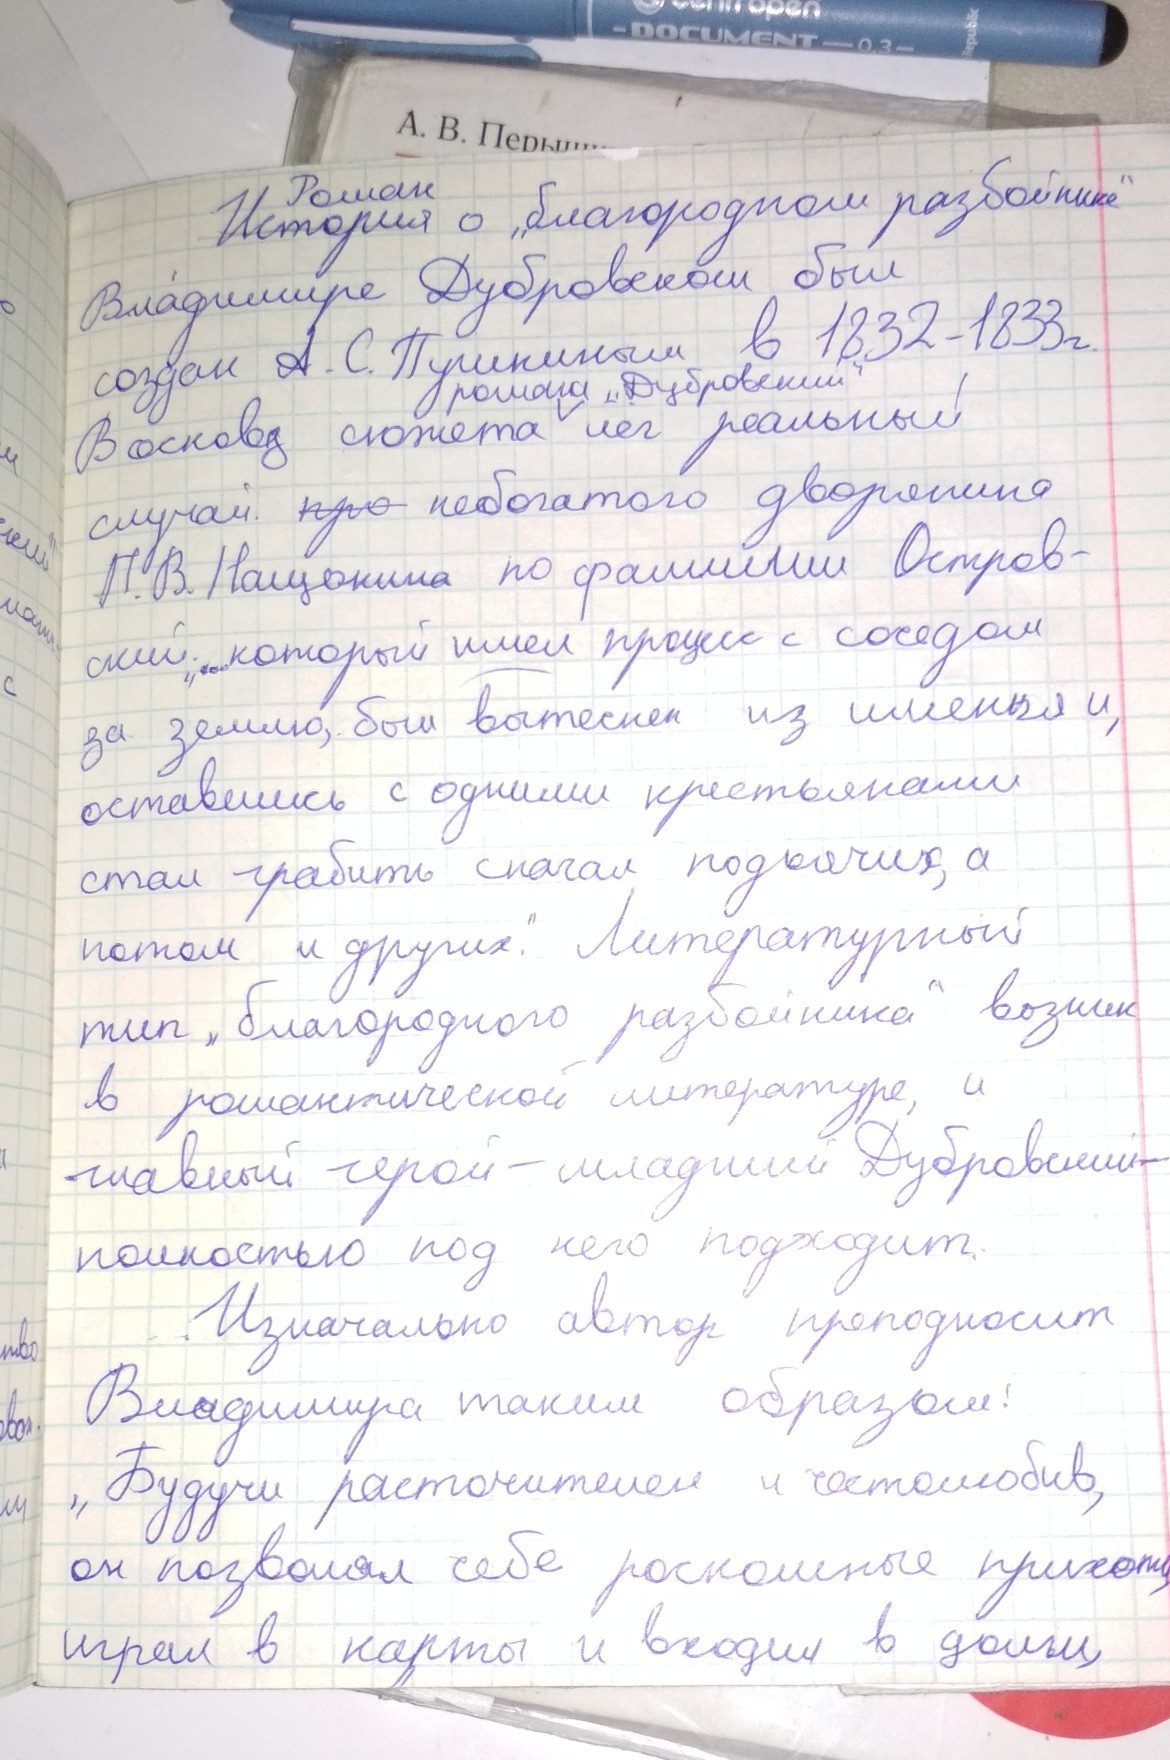 centropen
DOCUMENT 0,3
Republic
А. В. Перышк
Роман
История о „благородном разбойнике"
Владимире Дубровском был
создан А. С. Пушкиным в 1832-1833г.
романа „Дубровский"
В основа сюжета лег реальный
случай про небогатого дворянина
П. В. Нащокина по фамилии Остров-
ский „...который имел процесс с соседом
за землю, был вытеснен из именья и,
оставшись с одними крестьянами
стал грабить сначал подьячих, а
потом и других." Литературный
тип „благородного разбойника" возник
в романтической литературе, и
главный герой - младший Дубровский -
полностью под него подходит.
Изначально автор преподносит
Владимира таким образом:
„Будучи расточителен и честолюбив,
он позволял себе роскошные прихоти,
играл в карты и входил в долги,